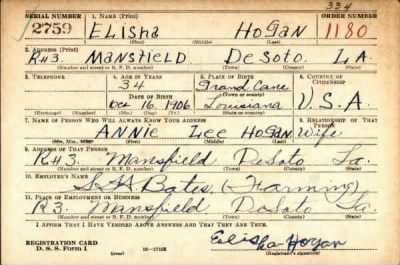 334
SERIAL NUMBER 1. NAME (Print) ORDER NUMBER
2759 ELisha HoGan 1180
(First) (Middle) (Last)
2. ADDRESS (Print)
R#3 MANSFIELD DeSoto. LA.
(Number and street or R. F. D. number) (Town) (County) (State)
3. TELEPHONE 4. AGE IN YEARS 5. PLACE OF BIRTH 6. COUNTRY OF CITIZENSHIP
34 Grand Cane
DATE OF BIRTH (Town or county)
Oct 16, 1906 Louisiana U.S.A.
(Exchange) (Number) (Mo.) (Day) (Yr.) (State or country)
7. NAME OF PERSON WHO WILL ALWAYS KNOW YOUR ADDRESS 8. RELATIONSHIP OF THAT PERSON
ANNIE Lee HoGan Wife
(Mr., Mrs., Miss) (First) (Middle) (Last)
9. ADDRESS OF THAT PERSON
R#3. Mansfield DeSoto La.
(Number and street or R. F. D. number) (Town) (County) (State)
10. EMPLOYER'S NAME
Bates, (Farming)
11. PLACE OF EMPLOYMENT OR BUSINESS
R3. Mansfield DeSoto La.
(Number and street or R. F. D. number) (Town) (County) (State)
I AFFIRM THAT I HAVE VERIFIED ABOVE ANSWERS AND THAT THEY ARE TRUE.
REGISTRATION CARD
D. S. S. Form 1 (over) Elisha Hogan
(Registrant's signature)